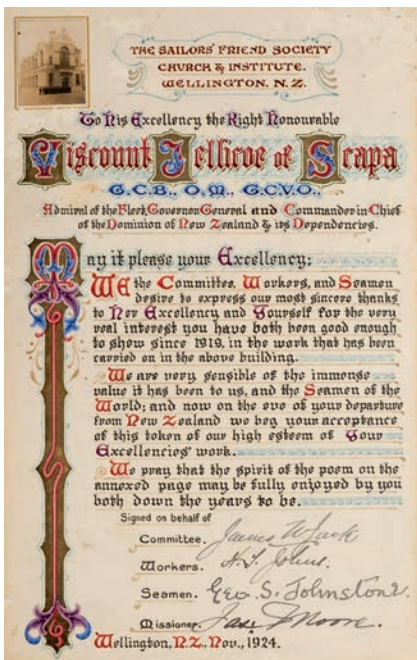 THE SAILORS' FRIEND SOCIETY
CHURCH & INSTITUTE.
WELLINGTON. N.Z.
To His Excellency the Right Honourable
Viscount Jellicoe of Scapa
G.C.B., O.M., G.C.V.O.,
Admiral of the Fleet, Governor General and Commander in Chief
of the Dominion of New Zealand & its Dependencies.
May it please your Excellency;
WE the Committee, Workers, and Seamen
desire to express our most sincere thanks
to Her Excellency and Yourself for the very
real interest you have both been good enough
to show since 1919, in the work that has been
carried on in the above building.
We are very sensible of the immense
value it has been to us, and the Seamen of the
World; and now on the eve of your departure
from New Zealand we beg your acceptance
of this token of our high esteem of Your
Excellencies' work.
We pray that the spirit of the poem on the
annexed page may be fully enjoyed by you
both down the years to be.
Signed on behalf of
Committee. James W Jack
Workers. H. J. Johns.
Seamen. Geo. S. Johnstone.
Missioner. Jas Moore.
Wellington, N.Z., Nov., 1924.